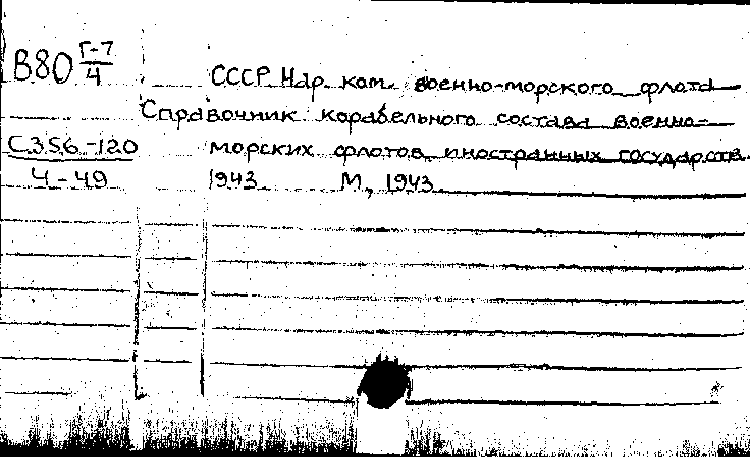 В80 Г-7/4
СССР Нар. ком. военно-морского флота
Справочник корабельного состава военно-
С356-120 морских флотов иностранных государств.
4-49 1943. М, 1943.